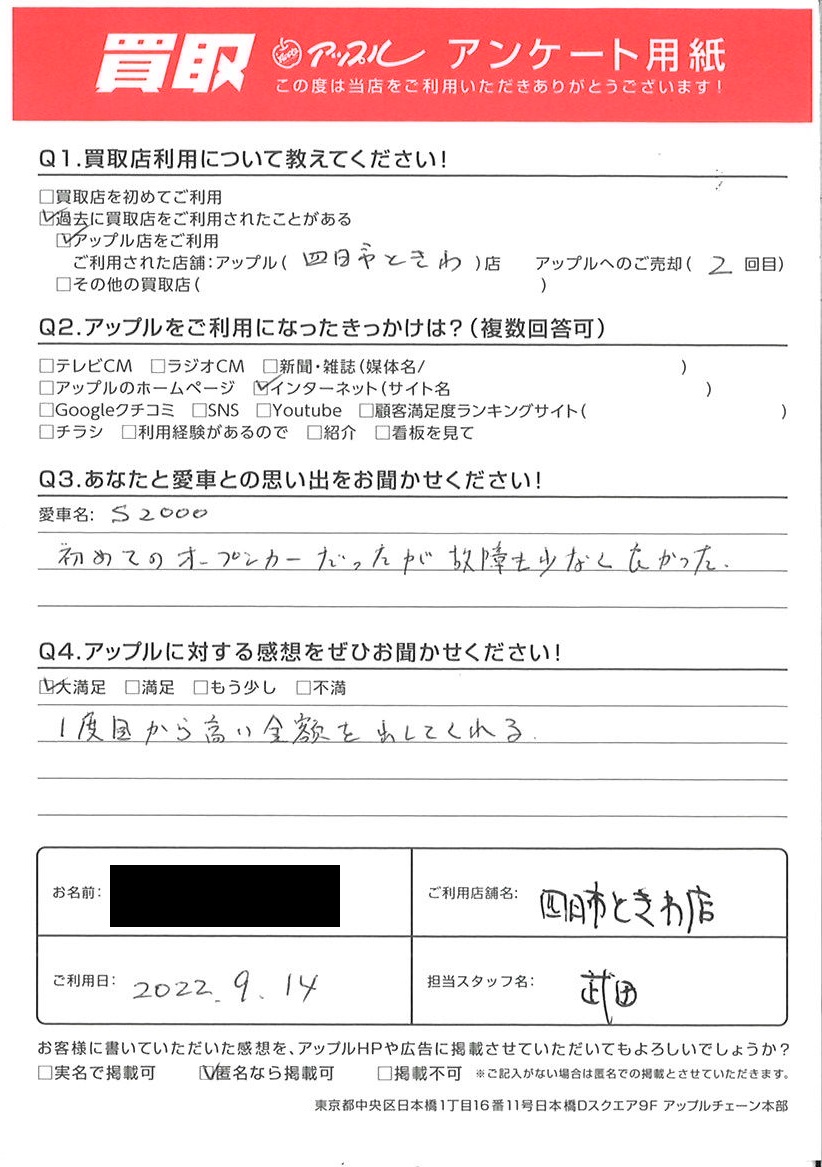 買取 アップル アンケート用紙
この度は当店をご利用いただきありがとうございます!
Q1.買取店利用について教えてください!
□買取店を初めてご利用
☑過去に買取店をご利用されたことがある
☑アップル店をご利用
ご利用された店舗:アップル( 四日市ときわ )店 アップルへのご売却( 2 回目)
□その他の買取店( )
Q2.アップルをご利用になったきっかけは?(複数回答可)
□テレビCM □ラジオCM □新聞・雑誌(媒体名/ )
□アップルのホームページ ☑インターネット(サイト名 )
□Googleクチコミ □SNS □Youtube □顧客満足度ランキングサイト( )
□チラシ □利用経験があるので □紹介 □看板を見て
Q3.あなたと愛車との思い出をお聞かせください!
愛車名: S2000
初めてのオープンカーだったが故障も少なく良かった.
Q4.アップルに対する感想をぜひお聞かせください!
☑大満足 □満足 □もう少し □不満
1度目から高い金額を出してくれる.
お名前: ご利用店舗名: 四日市ときわ店
ご利用日: 2022.9.14 担当スタッフ名: 武田
お客様に書いていただいた感想を、アップルHPや広告に掲載させていただいてもよろしいでしょうか?
□実名で掲載可 ☑匿名なら掲載可 □掲載不可 ※ご記入がない場合は匿名での掲載とさせていただきます。
東京都中央区日本橋1丁目16番11号日本橋Dスクエア9F アップルチェーン本部